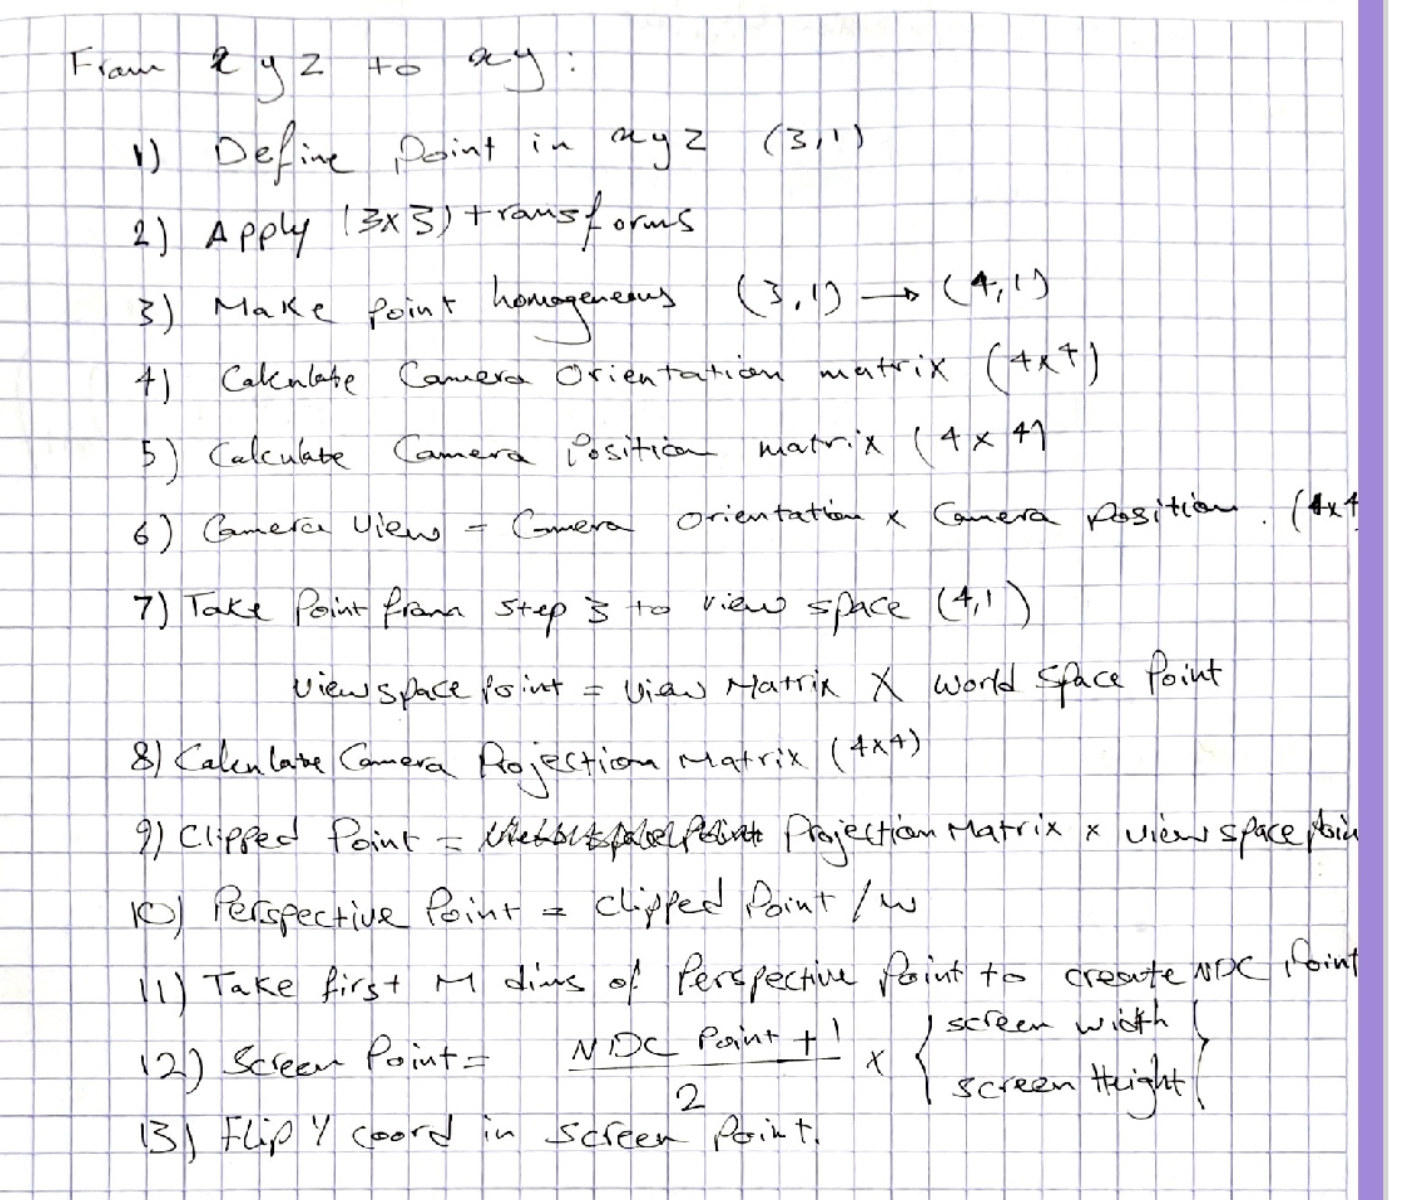 From xyz to xy:
1) Define Point in xyz (3,1)
2) Apply (3x3) transforms
3) Make Point homogeneous (3,1) → (4,1)
4) Calculate Camera Orientation matrix (4x4)
5) Calculate Camera Position matrix (4x4)
6) Camera View = Camera Orientation x Camera Position. (4x4
7) Take Point from step 3 to view space (4,1)
view space Point = View Matrix X World Space Point
8) Calculate Camera Projection Matrix (4x4)
9) Clipped Point = Projection Matrix x view space poin
10) Perspective Point = Clipped Point / w
11) Take first M dims of Perspective Point to create NDC Point
12) Screen Point = NDC Point + 1 / 2 x { screen width
screen Height }
13) Flip Y coord in Screen Point.